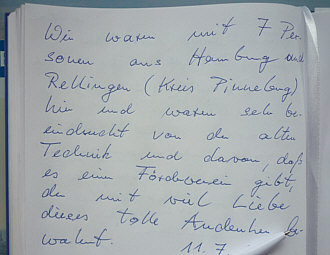 Wir waren mit 7 Per-
sonen aus Hamburg und
Rellingen (Kreis Pinneberg)
hier und waren sehr be-
eindruckt von der alten
Technik und davon, daß
es einen Förderverein gibt,
der mit viel Liebe
dieses tolle Andenken be-
wahrt. 11.7.